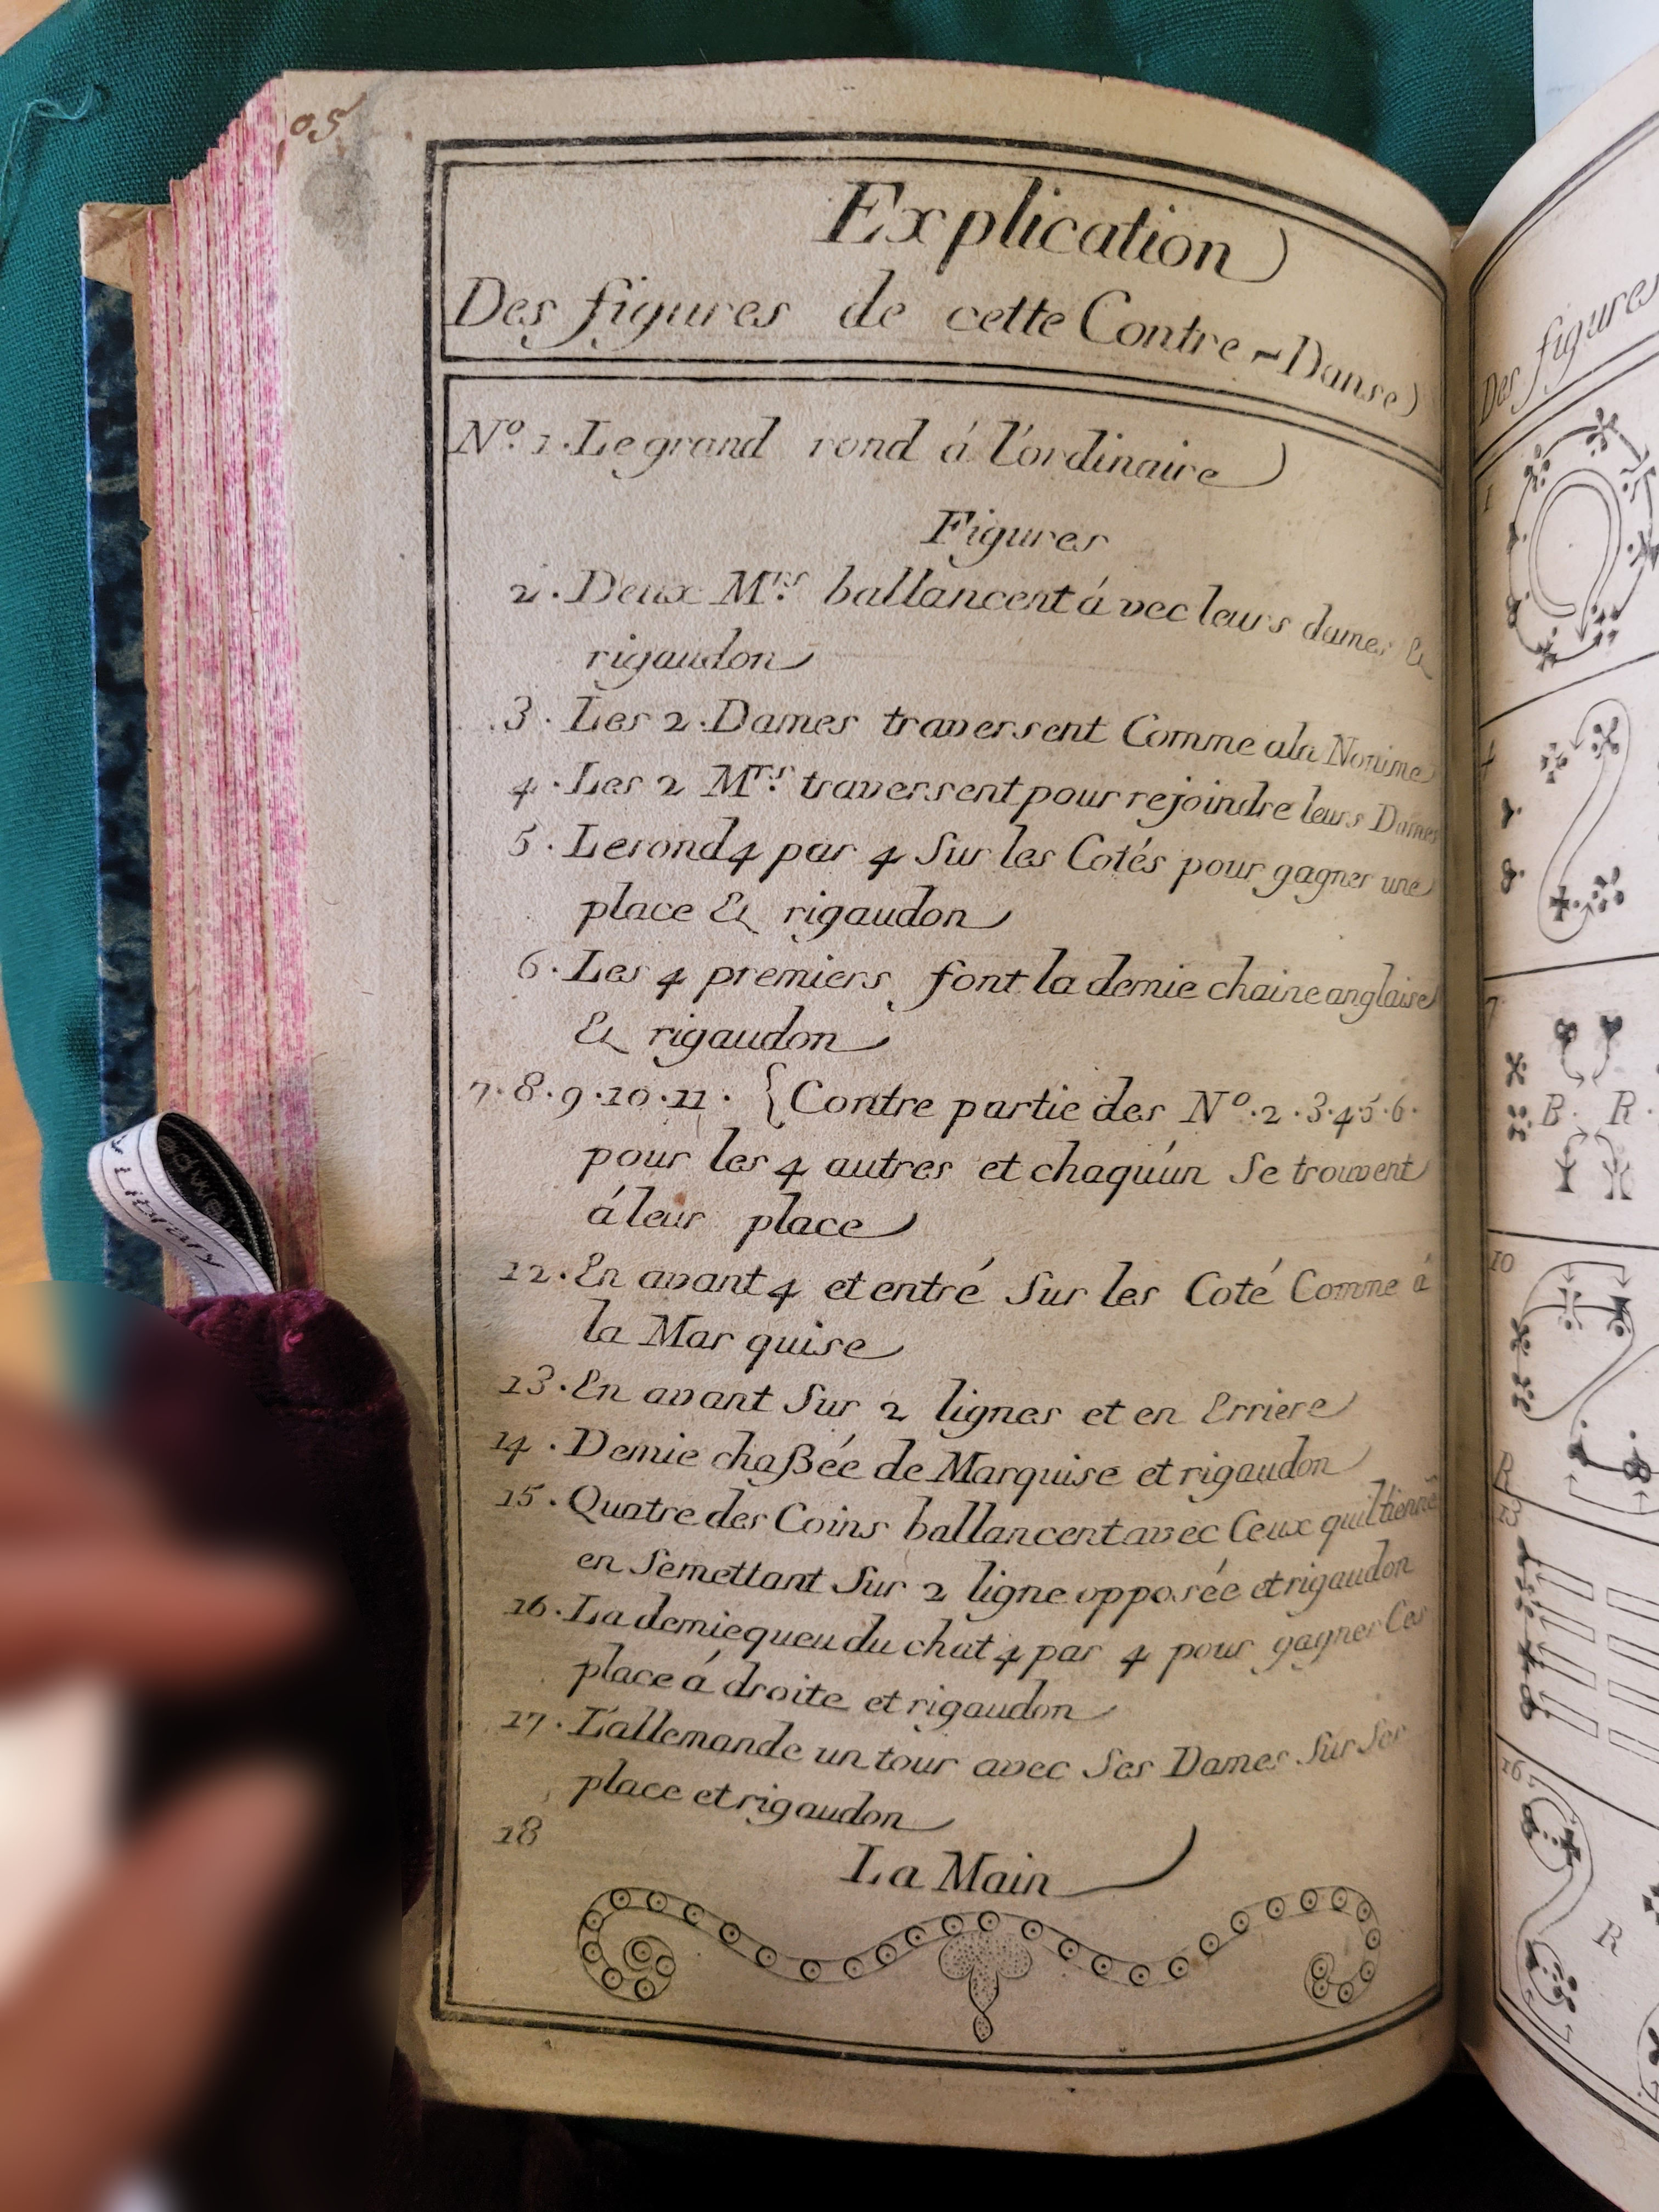 05
Explication
Des figures de cette Contre-Danse
Nº. 1. Le grand rond á l'ordinaire
Figures
2. Deux Mrs. ballancent ávec leurs dames &
rigaudon
3. Les 2. Dames traversent Comme ala Nonime
4. Les 2 Mrs. traversent pour rejoindre leurs Dames
5. Le rond 4 par 4 Sur les Cotés pour gagner une
place & rigaudon
6. Les 4 premiers font la demie chaine anglaise
& rigaudon
7.8.9.10.11. {Contre partie des Nº.2.3.4.5.6.
pour les 4 autres et chaqu'un Se trouvent
á leur place
12. En avant 4 et entré Sur les Coté Comme á
la Marquise
13. En avant Sur 2 lignes et en Erriere
14. Demie chaßée de Marquise et rigaudon
15. Quatre des Coins ballancent avec Ceux quil tienne
en Semettant Sur 2 ligne opposée et rigaudon
16. La demie queu du chat 4 par 4 pour gagner Ces
place á droite et rigaudon
17. L'allemande un tour avec Ses Dames Sur Ses
place et rigaudon
18
La Main
Library
Des figures
1
4
7
B. R.
10
R
13
16
R